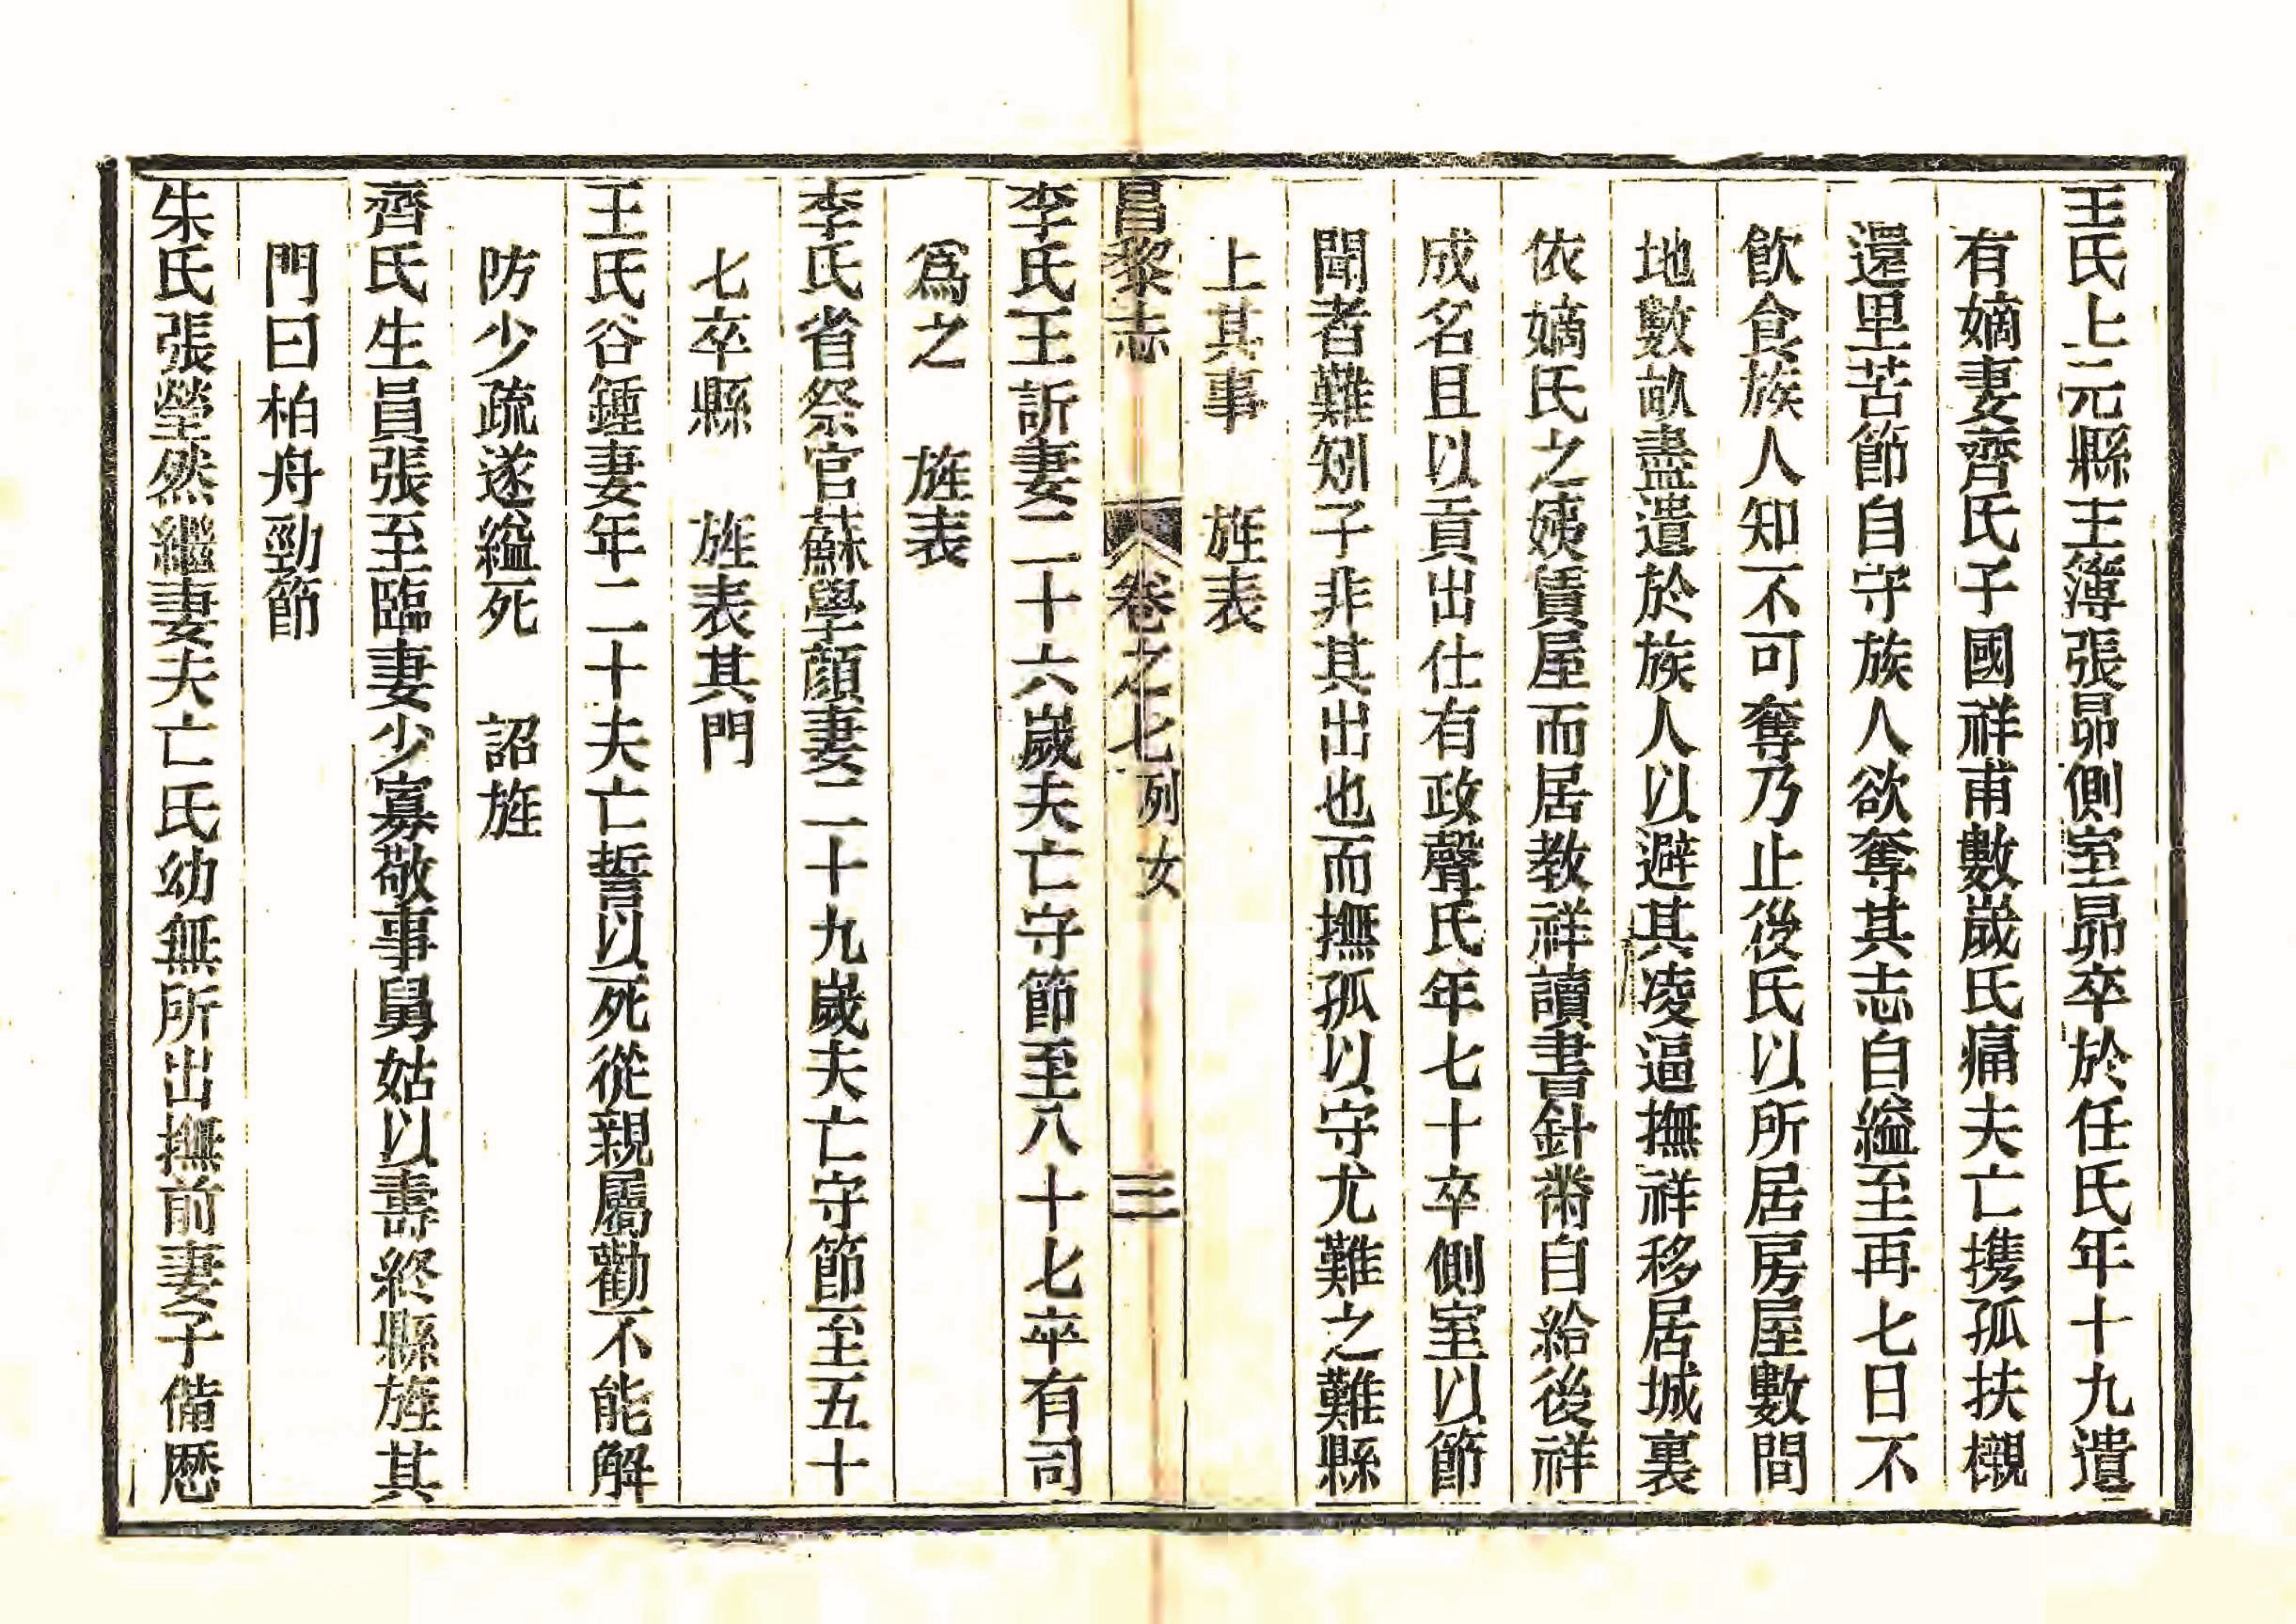 王氏上元縣王簿張昴側室昴卒於任氏年十九遺
有嫡妻齊氏子國祥甫數歲氏痛夫亡携孤扶櫬
還里苦節自守族人欲奪其志自縊至再七日不
飲食族人知不可奪乃止後氏以所居房屋數間
地數畝盡遺於族人以避其凌逼撫祥移居城裏
依嫡氏之姨賃屋而居教祥讀書針黹自給後祥
成名且以貢出仕有政聲氏年七十卒側室以節
聞者難矧子非其出也而撫孤以守尤難之難縣
上其事　旌表
昌黎志　卷之七 列女　三
李氏王訢妻二十六歲夫亡守節至八十七卒有司
爲之　旌表
李氏省祭官蘇學顔妻二十九歲夫亡守節至五十
七卒縣　旌表其門
王氏谷鍾妻年二十夫亡誓以死從親屬勸不能解
防少疏遂縊死　詔旌
齊氏生員張至臨妻少寡敬事舅姑以壽終縣旌其
門曰柏舟勁節
朱氏張瑩然繼妻夫亡氏幼無所出撫前妻子備歷